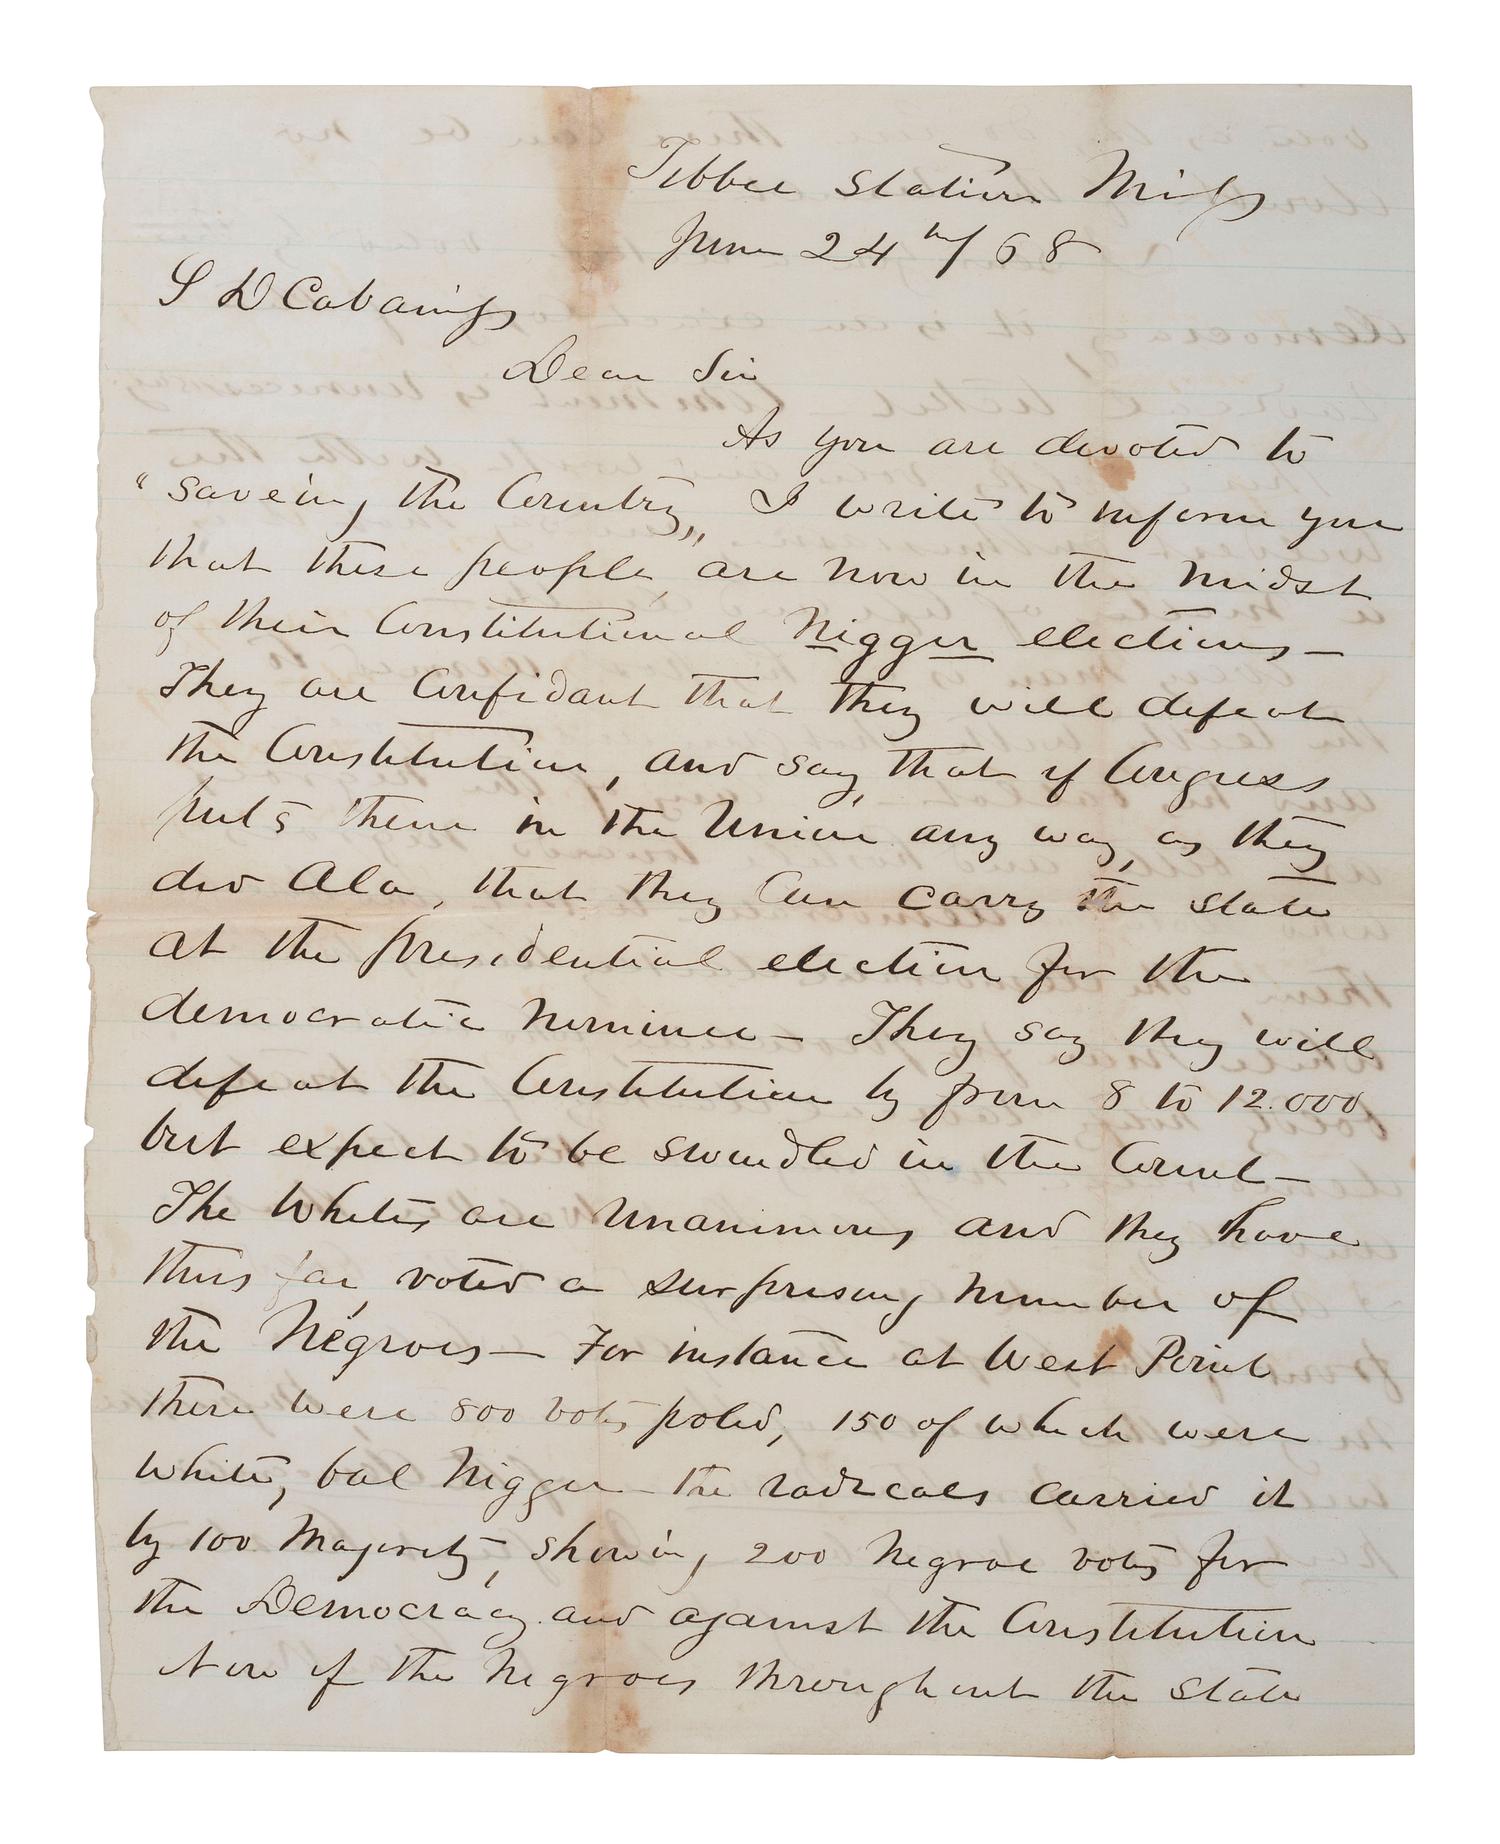 Tibbee Station Miss
June 24th/68
S D Cabaniss
Dear Sir
As you are devoted to
"saveing the Country," I write to inform you
that these people are now in the midst
of their Constitutional Nigger elections—
They are Confidant that they will defeat
the Constitution, and say, that if Congress
puts them in the Union any way, as they
did Ala, that they Can carry the state
at the presidential election for the
democratic Nominee— They say they will
defeat the Constitution by from 8 to 12.000
but expect to be swindled in the Count—
The Whites are Unanimous and they have
thus far voted a surprising Number of
the Negroes— For instance at West Point
there were 800 votes poled, 150 of which were
White, bal Nigger— the radicals carried it
by 100 Majority, showing 200 Negroe votes for
the Democracy and against the Constitution
Now if the Negroes throughout the state